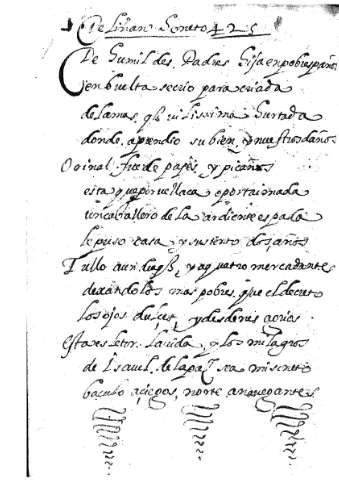 De Liñan. Soneto 425
De humildes Padres hija en pobres paños
enbuelta se crio para criada
de la mas vilissima hurtada
donde aprendio su bien, y nuestros daños
Orinal fue de pajes, y picaños
esta que por vellaca, o por taimada
un caballero de la ardiente espada
le puso casa, y sustento dos años
Tullo a un y a quatro mercadantes
dexandolos mas pobres, que el decreto
los ojos dulces, y desdenes agrios
esta es letor. la vida, y los milagros
de Isavel de la paz sea mi soneto
baculo a ciegos, norte a navegantes